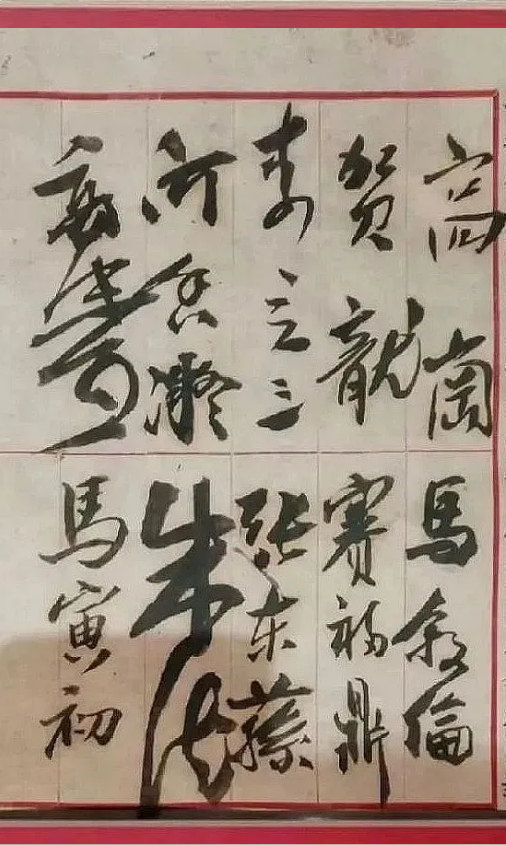 高崗
贺龍
李立三
何香凝
馬叙倫
賽福鼎
张东蓀
朱德
馬寅初